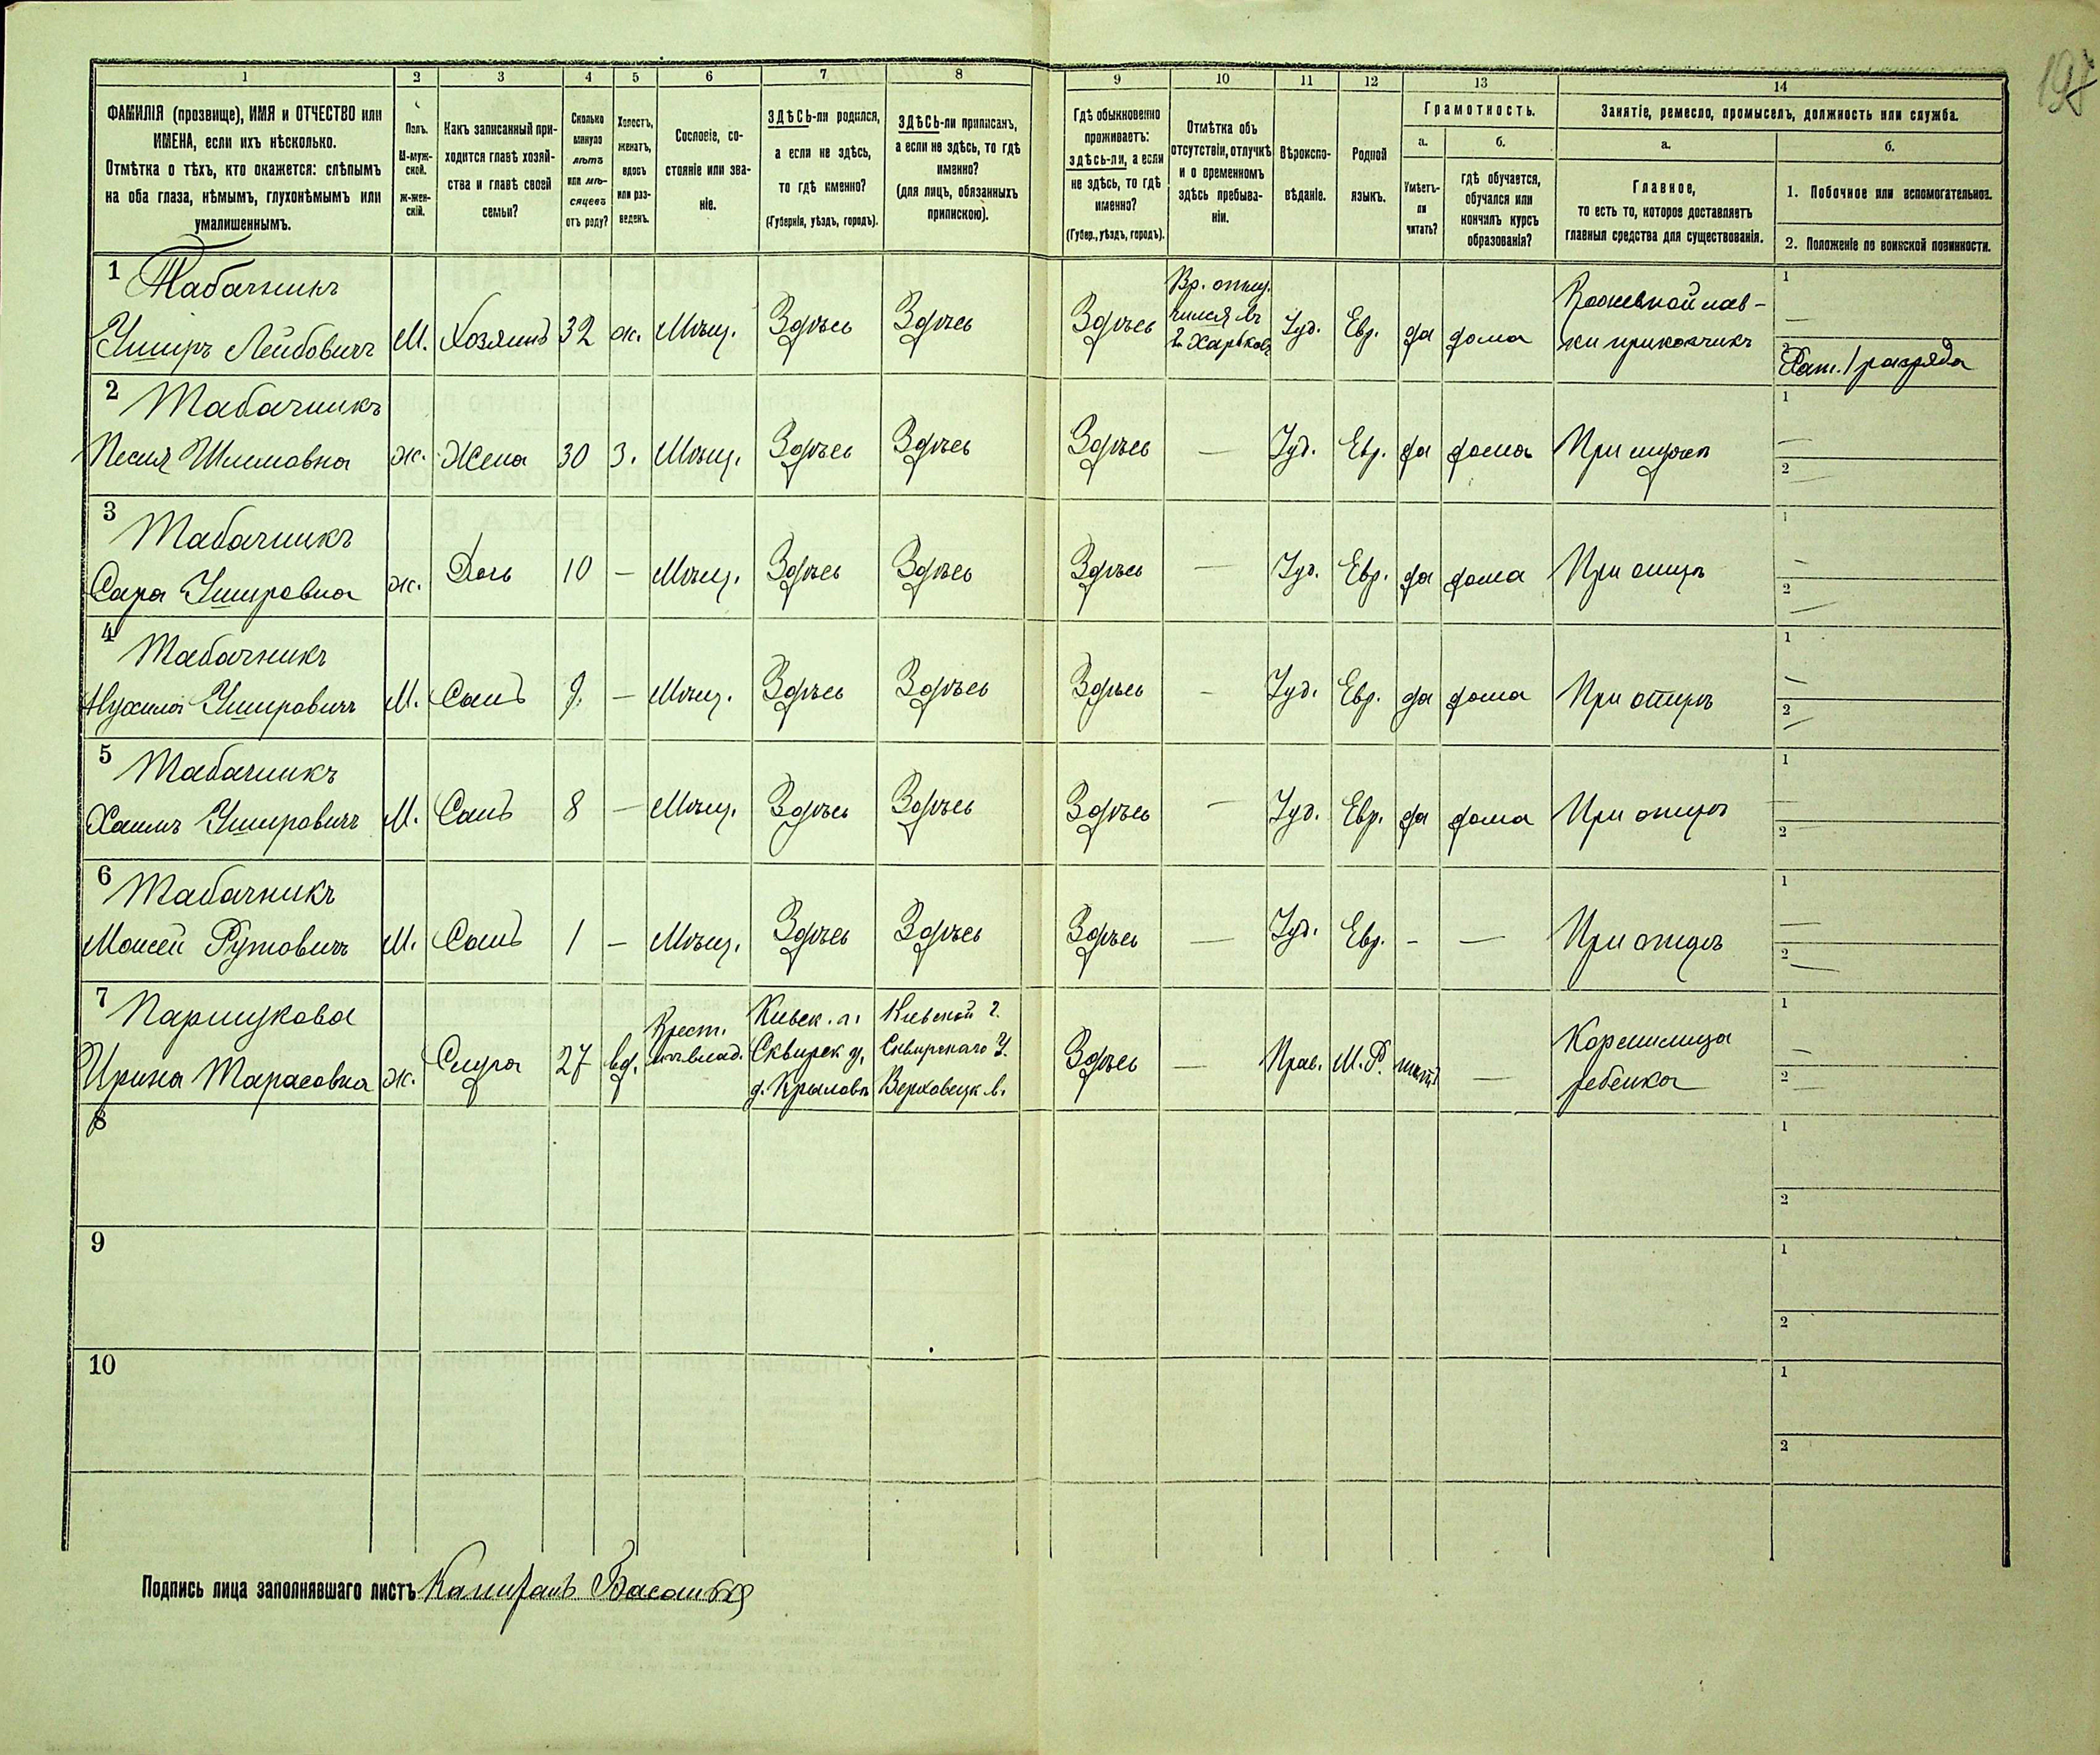 197
1 2 3 4 5 6 7 8 9 10 11 12 13 14
ФАМИЛІЯ (прозвище), ИМЯ и ОТЧЕСТВО или
ИМЕНА, если ихъ нѣсколько.
Отмѣтка о тѣхъ, кто окажется: слѣпымъ
на оба глаза, нѣмымъ, глухонѣмымъ или
умалишеннымъ.
Полъ.
М-муж-
ской.
Ж-жен-
скій.
Какъ записанный при-
ходится главѣ хозяй-
ства и главѣ своей
семьи?
Сколько
минуло
лѣтъ
или мѣ-
сяцевъ
отъ роду?
Холостъ,
женатъ,
вдовъ
или раз-
веденъ.
Сословіе, со-
стояніе или зва-
ніе.
ЗДѢСЬ-ли родился,
а если не здѣсь,
то гдѣ именно?
(Губернія, уѣздъ, городъ).
ЗДѢСЬ-ли приписанъ,
а если не здѣсь, то гдѣ
именно?
(для лицъ, обязанныхъ
припискою).
Гдѣ обыкновенно
проживаетъ:
здѣсь-ли, а если
не здѣсь, то гдѣ
именно?
(Губер., уѣздъ, городъ).
Отмѣтка объ
отсутствіи, отлучкѣ
и о временномъ
здѣсь пребыва-
ніи.
Вѣроиспо-
вѣданіе.
Родной
языкъ.
Грамотность.
а.
Умѣетъ-
ли
читать?
б.
гдѣ обучается,
обучался или
кончилъ курсъ
образованія?
Занятіе, ремесло, промыселъ, должность или служба.
а.
Главное,
то есть то, которое доставляетъ
главныя средства для существованія.
б.
1. Побочное или вспомогательное.
2. Положеніе по воинской повинности.
1 Табачникъ
Уширъ Лейбовичъ М. Хозяинъ 32 ж. Мѣщ. Здѣсь Здѣсь Здѣсь
Вр. отлу-
чился въ
г. Харьковъ
Іуд. Евр. да дома
лав-
ки приказчикъ
1 —
2 Рат. 1 разряда
2 Табачникъ
Песия Шлемовна ж. Жена 30 з. Мѣщ. Здѣсь Здѣсь Здѣсь — Іуд. Евр. да дома При мужѣ
1 —
2 —
3 Табачникъ
Сара Ушировна ж. Дочь 10 — Мѣщ. Здѣсь Здѣсь Здѣсь — Іуд. Евр. да дома При отцѣ
1 —
2 —
4 Табачникъ
Нухимъ Ушировичъ М. Сынъ 9. — Мѣщ. Здѣсь Здѣсь Здѣсь — Іуд. Евр. да дома При отцѣ
1 —
2 —
5 Табачникъ
Хаимъ Ушировичъ М. Сынъ 8 — Мѣщ. Здѣсь Здѣсь Здѣсь — Іуд. Евр. да дома При отцѣ
1 —
2 —
6 Табачникъ
Моисей М. Сынъ 1 — Мѣщ. Здѣсь Здѣсь Здѣсь — Іуд. Евр. — — При отцѣ
1 —
2 —
7 Паршукова
Ирина Тарасовна ж. Слуга 27 вд.
Крест.
Киевск. г.
Сквирск у.
д. Крыловъ
Киевской г.
Сквирскаго У.
Верховецк в.
Здѣсь — Прав. М.Р. —
Кормилица
ребенка
1 —
2 —
8
1
2
9
1
2
10
1
2
Подпись лица заполнявшаго листъ